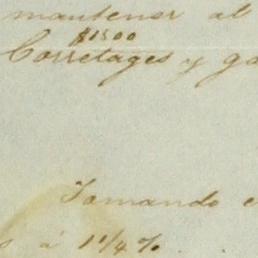 mantener al
$1500
Corretages y ga
Tomando e
s á 1 1/4 %